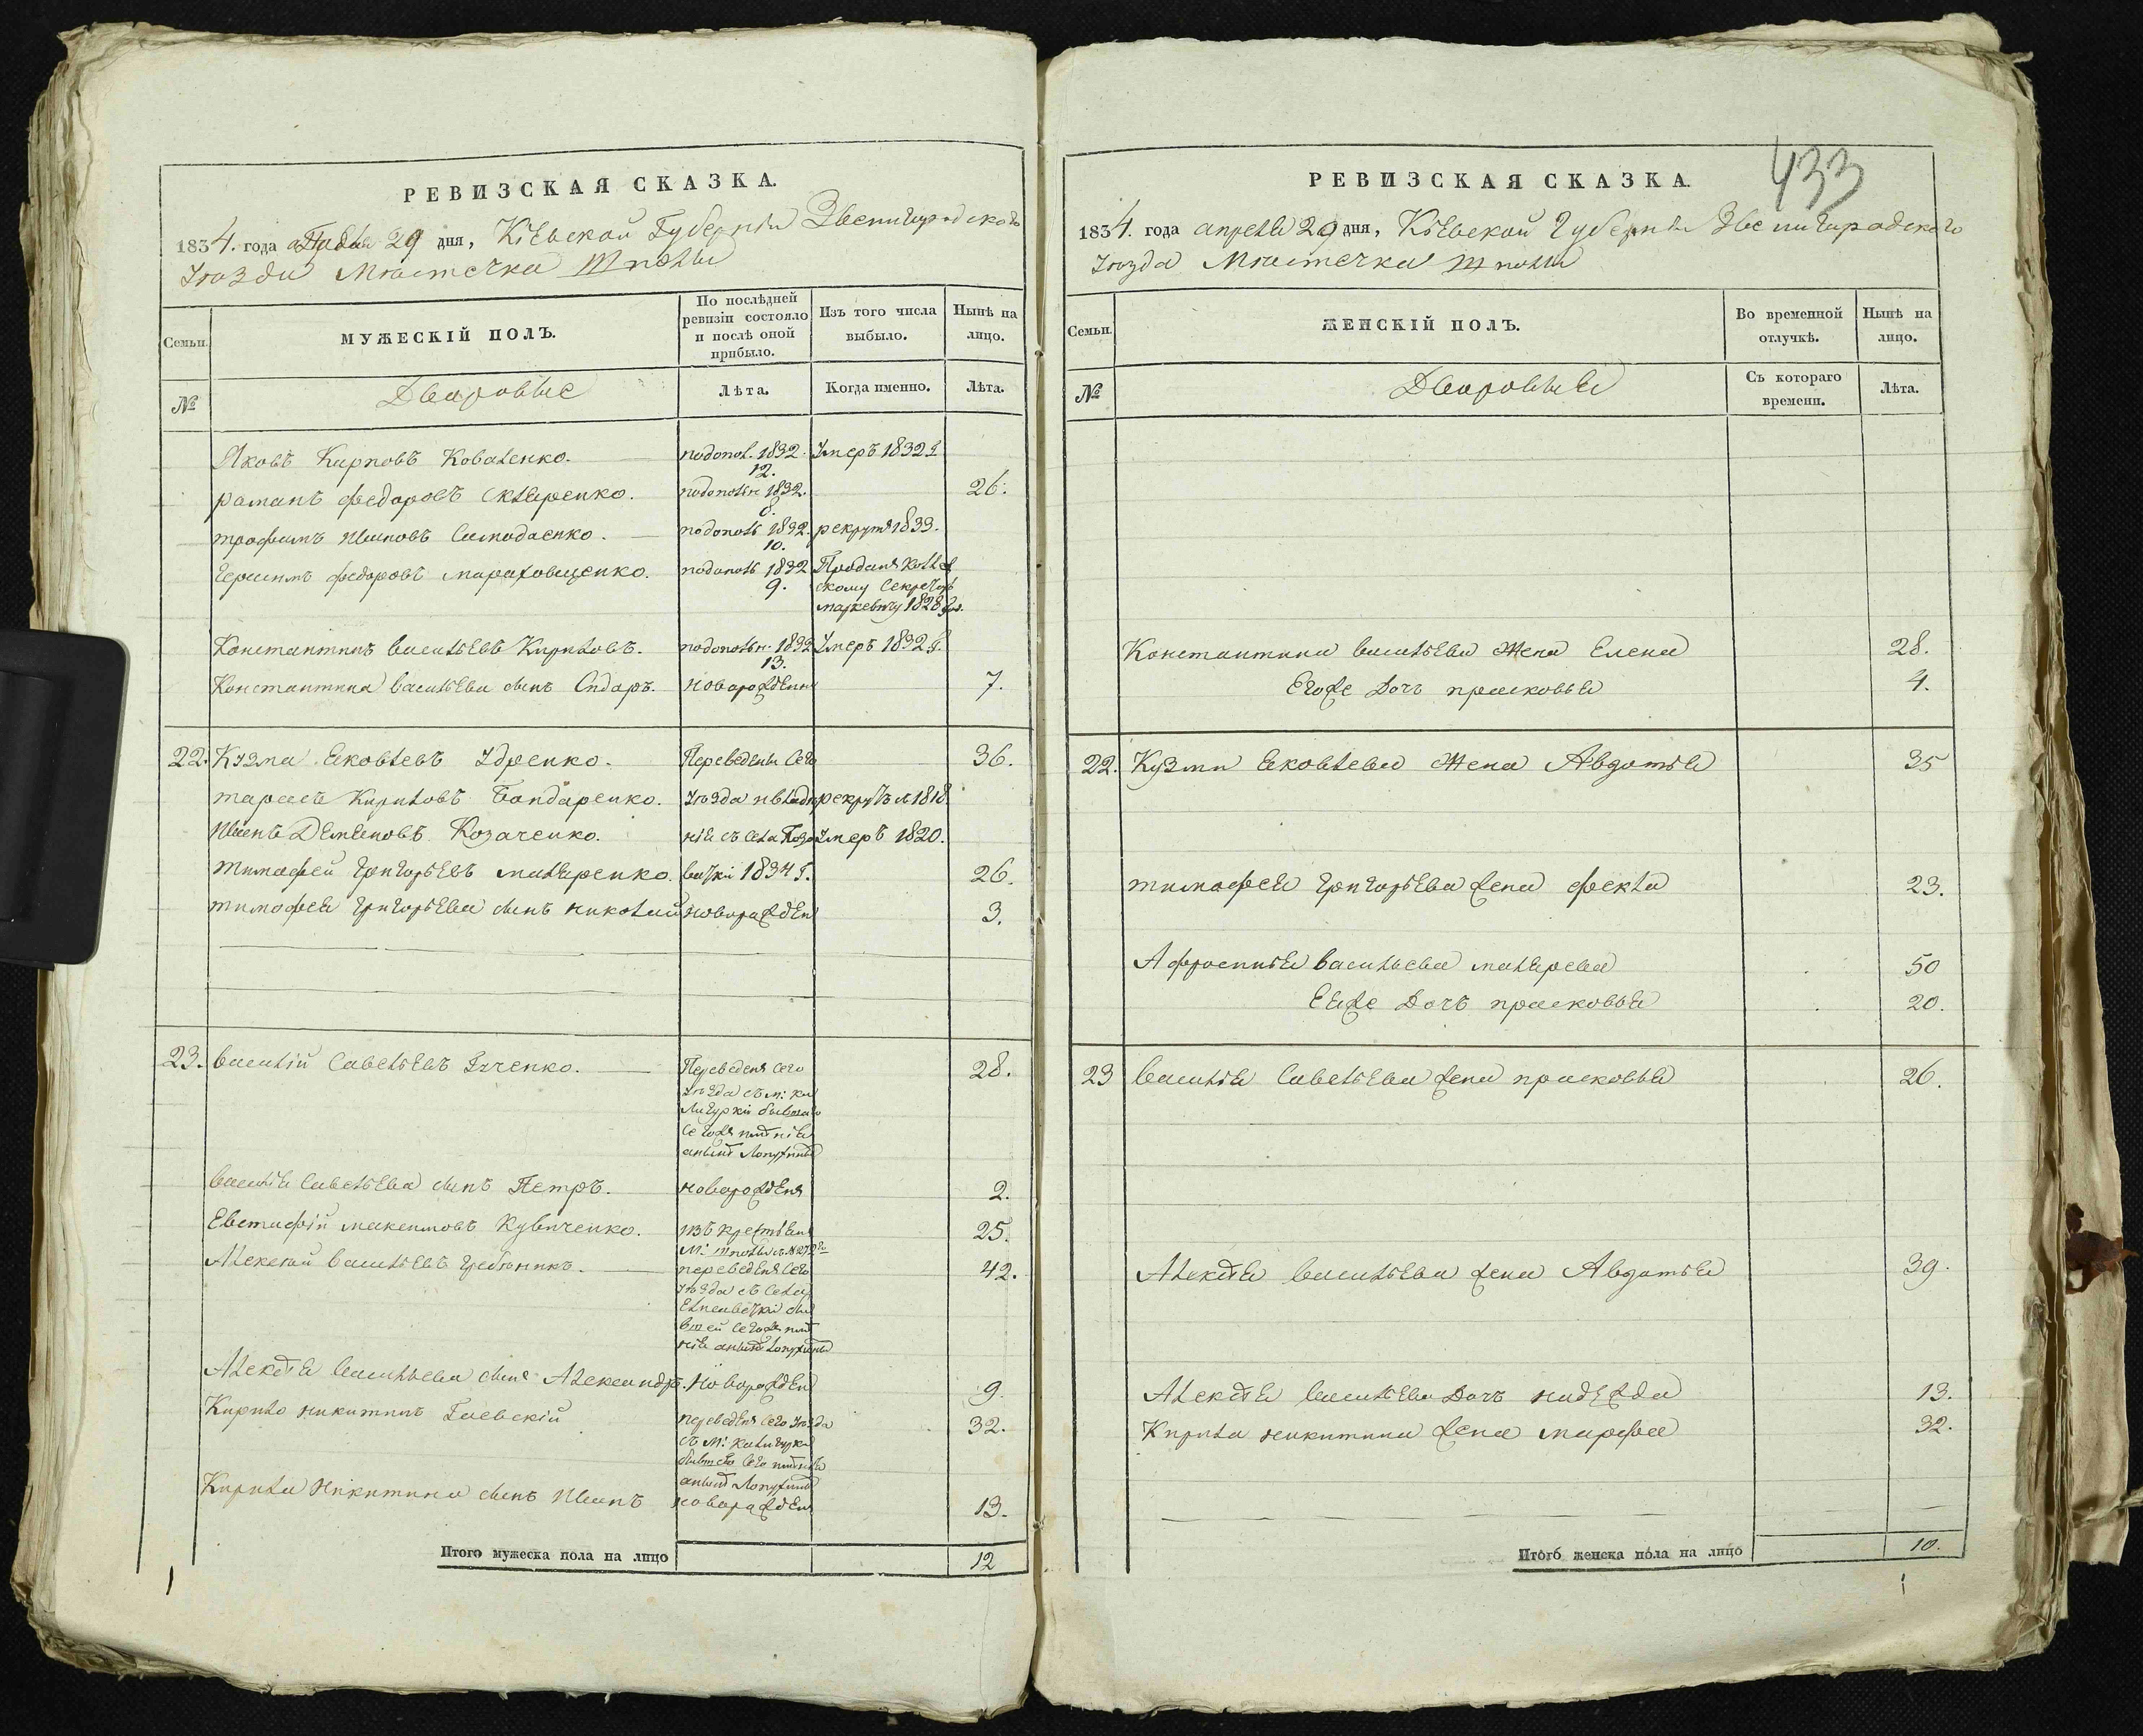 РЕВИЗСКАЯ СКАЗКА.
1834. года апреля 29 дня, Кіевской Губерніи Звенигородскаго
Уезда Местечка Шполы
Семьи.
МУЖЕСКІЙ ПОЛЪ.
По послѣдней ревизіи состояло и послѣ оной прибыло.
Изъ того числа выбыло.
Нынѣ на лицо.
№
Дворовые
Лѣта.
Когда именно.
Лѣта.
Яковъ Карповъ Коваленко. подопол. 1832. 12. Умеръ 1832 г.
романъ федоровъ Скляренко. подополн. 1832. 8. 26.
трофимъ Ивановъ Самодаенко. подополн 1832. 10. рекрутъ 1833.
федоровъ подополн 1832 9. Проданъ
скому Секретарю
маркевичу 1828 г.
Константинъ васильевъ Кириловъ. подополн. 1832 13. Умеръ 1832 г.
Константина васильева сынъ Сидаръ. новорожденъ 7.
22. Кузма яковлевъ Удренко. Переведены сего 36.
тарасъ Кириловъ Бондаренко. Уезда рекрутъ 1818.
Иванъ Деменовъ Козаченко. Умеръ 1820.
тимофей григорьевъ маляренко. 1834 г. 26.
тимофея григорьева сынъ николай новорожден 3.
23. василій савельевъ Ільченко. Переведенъ сего 28.
Уезда съ м: Ка
лигурки бывшаго
сегожъ имѣнія
Лопухина
василія савельева сынъ Петръ. новорожденъ 2.
Евстафій максимовъ Кувиченко. изъ крестьянъ 25.
М: Шполы съ №
Алексей васильевъ гребѣникъ. переведенъ сего 42.
Уезда съ села
сегожъ
Лопухина
Алексея васильева сынъ Александръ. новорожден 9.
Кирило никитинъ Гаевскій переведенъ сего Уезда 32.
съ М: Калигурки
бывшаго сего имѣнія
Лопухина
Кирила Никитина сынъ Иванъ новорожден 13.
Итого мужеска пола на лицо 12
433
РЕВИЗСКАЯ СКАЗКА.
1834. года апреля 29 дня, Кіевской Губерніи Звенигородскаго
Уезда Местечка Шполы
Семьи.
ЖЕНСКІЙ ПОЛЪ.
Во временной отлучкѣ.
Нынѣ на лицо.
№
Дворовыя
Съ котораго времени.
Лѣта.
Константина васильева Жена Елена 28.
Егоже Дочъ прасковья 4.
22. Кузми яковлева Жена Авдотья 35
тимофея григорьева жена фекла 23.
Афросинья васильева малярева 50
Еяже Дочъ прасковья 20.
23 василия савельева жена прасковья 26.
Алексѣя васильева жена Авдотья 39.
Алексѣя васильева Дочъ надежда 13.
Кирила никитина жена марфа 32.
Итого женска пола на лицо 10.